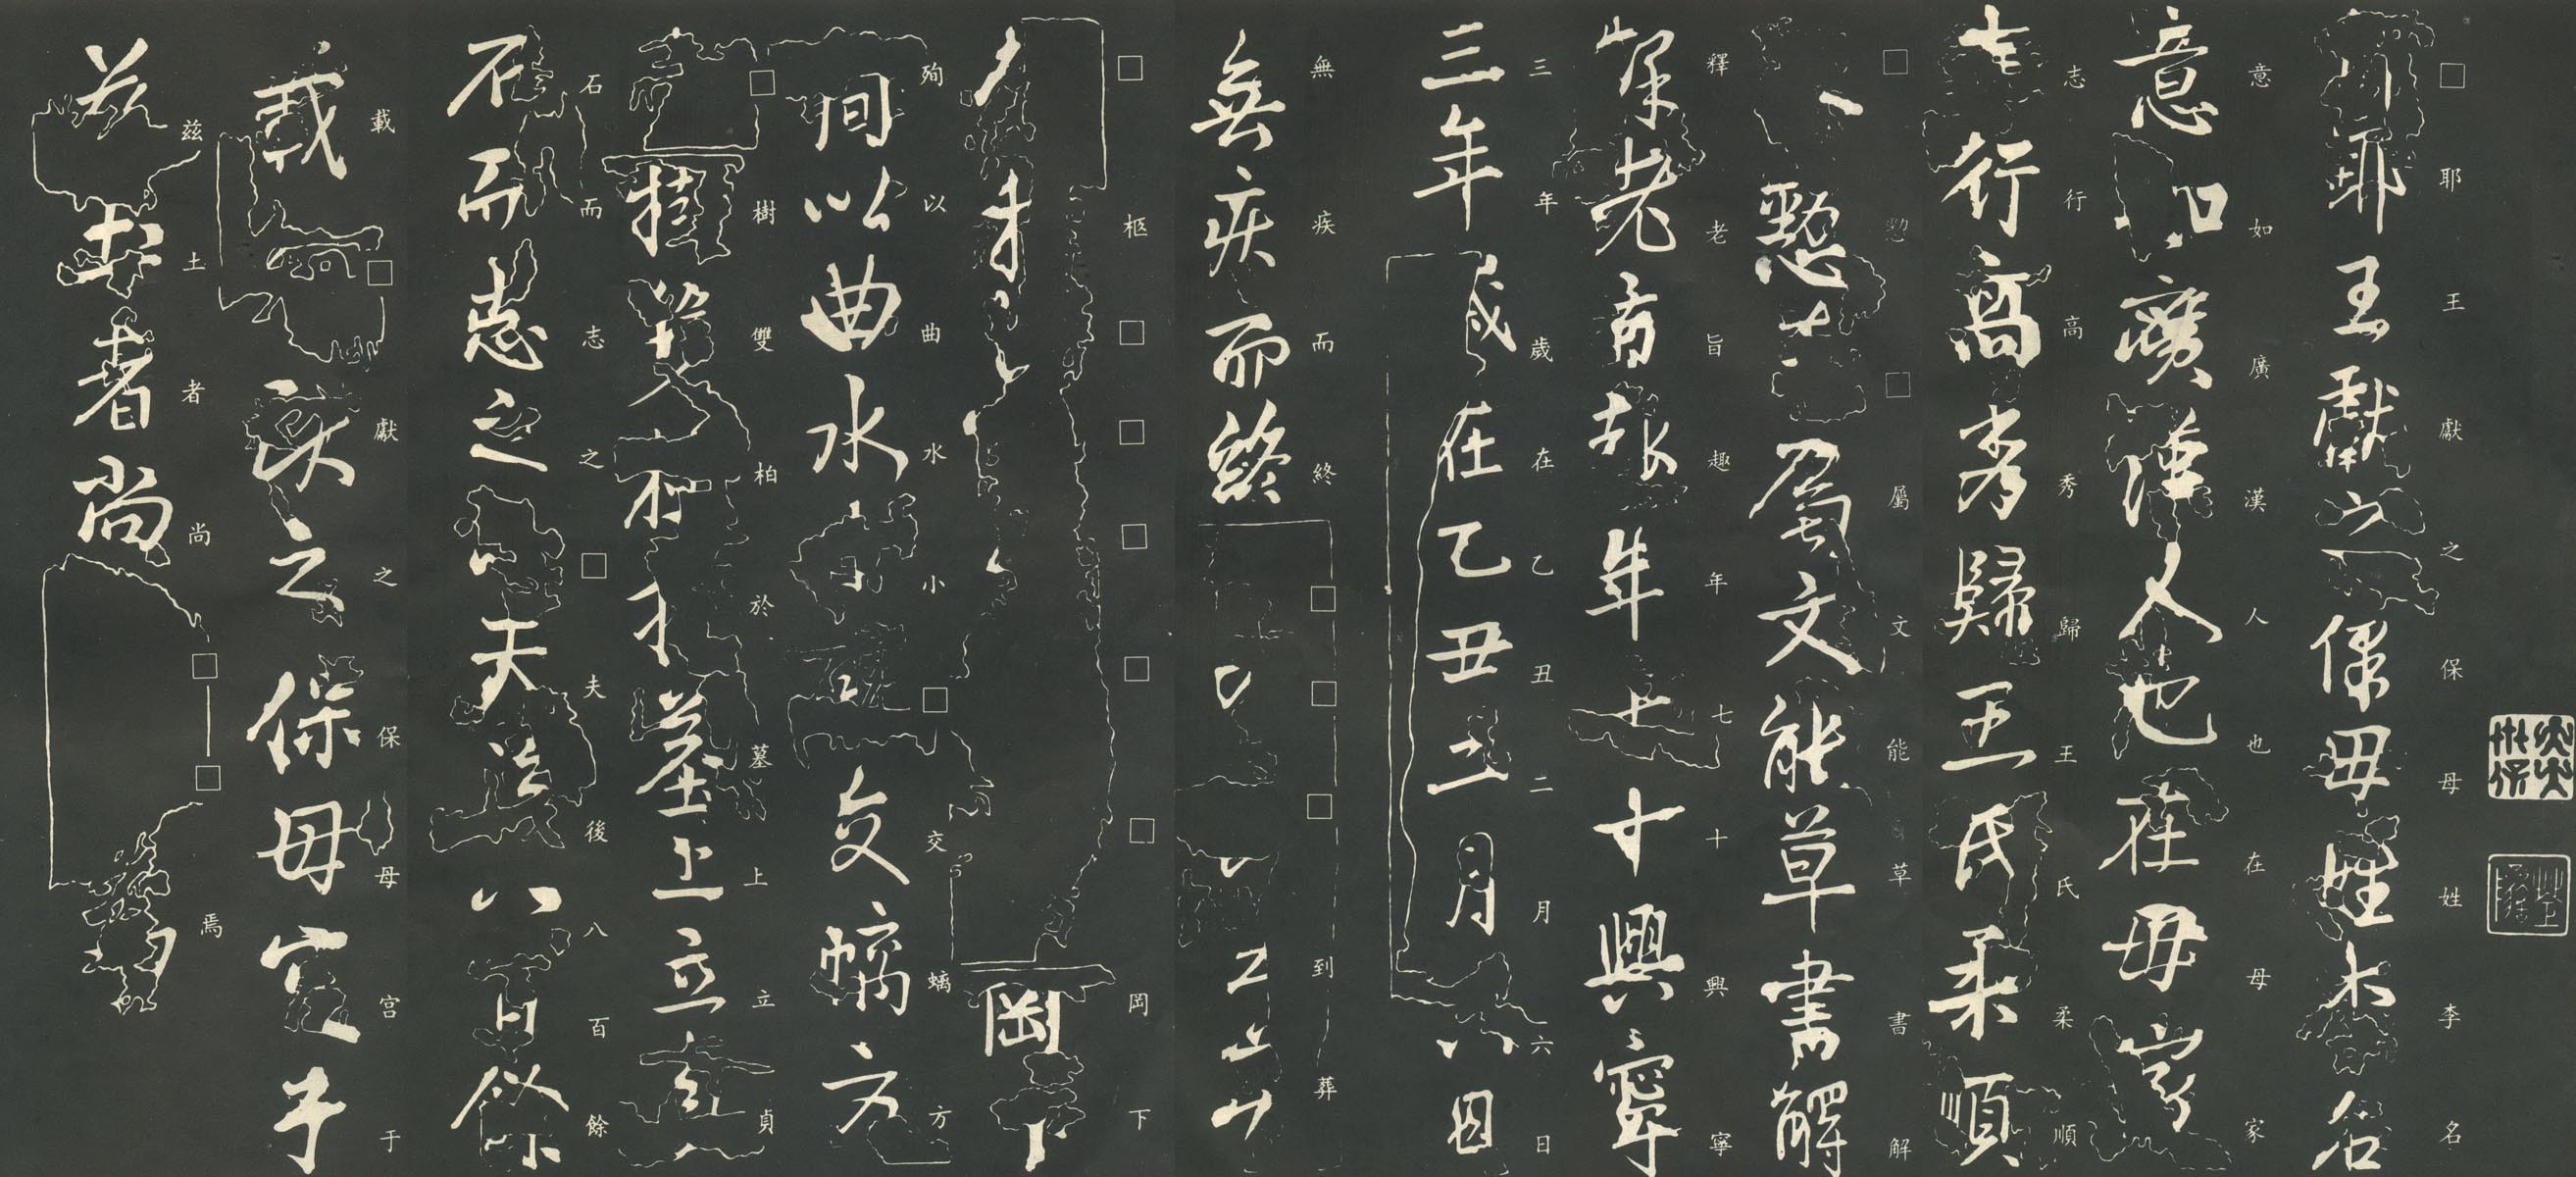 □耶王獻之保母姓李名
意如廣漢人也在母家
志行高秀歸王氏柔順
□懃□屬文能草書解
釋老旨趣年七十興寧
三年歲在乙丑二月六日
無疾而終□□□到葬
□柩□□□□□岡下
殉以曲水小□交螭方
□樹雙柏於墓上立貞
石而志之□夫後八百餘
載□獻之保母宫于
兹土者尚□□焉